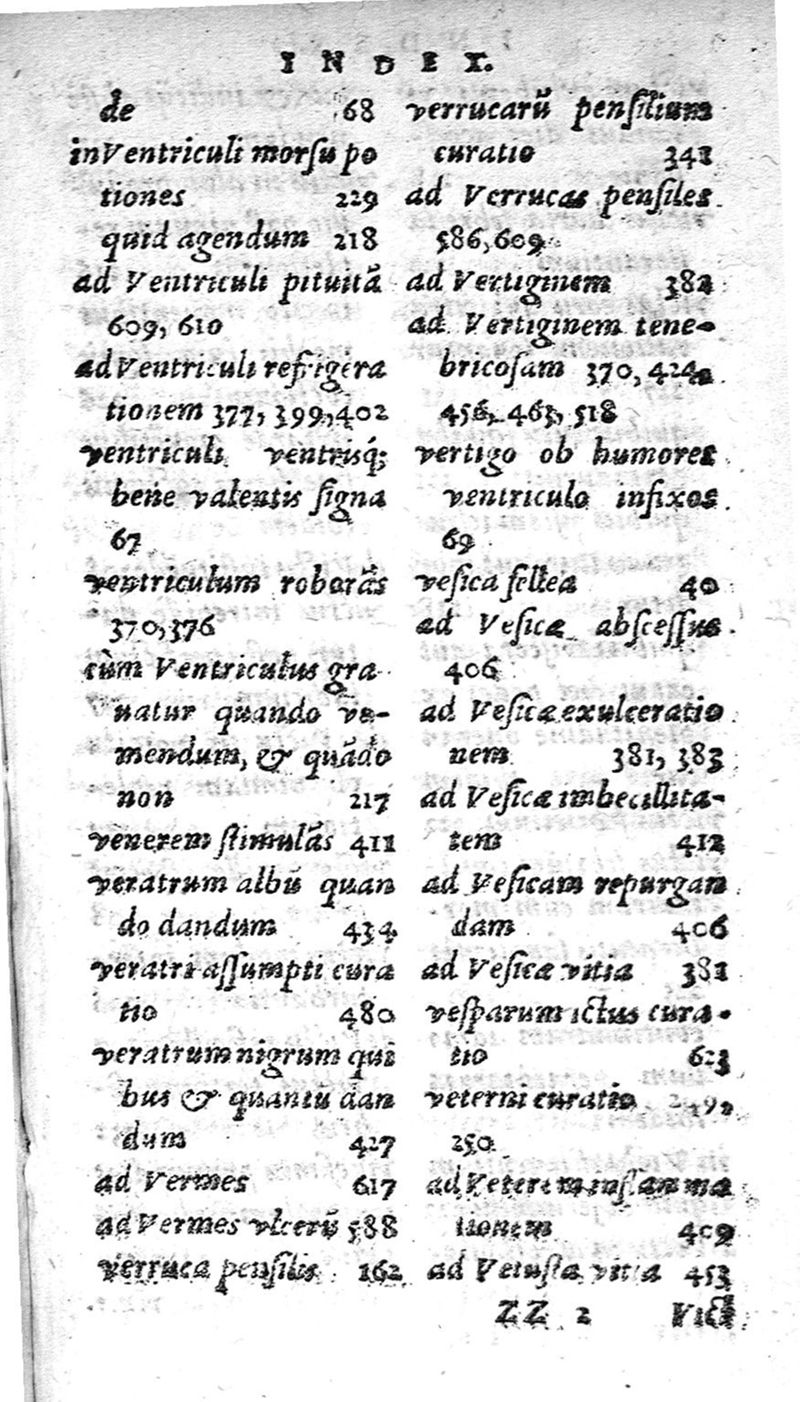 INDEX.
de 68
in Ventriculi morsu po
tiones 229
quid agendum 218
ad Ventriculi pituitā
609, 610
ad Ventriculi refrigera
tionem 377, 399, 402
ventriculi ventrisq́;
bene valentis ſigna
67
ventriculum roborās
370, 376
cùm Ventriculus gra
uatur quando vo-
mendum, & quādo
non 217
venerem ſtimulās 411
veratrum albū quan
do dandum 434
veratri aſſumpti cura
tio 480
veratrum nigrum qui
bus & quantū dan
dum 427
ad Vermes 617
ad Vermes vlcerū 588
verruca penſilis 162
verrucarū penſilium
curatio 341
ad Verrucas penſiles
586, 609
ad Vertiginem 382
ad Vertiginem tene-
bricoſam 370, 424,
456, 463, 518
vertigo ob humores
ventriculo infixos
69
veſica fellea 40
ad Veſicæ abſceſſus
406
ad Veſicæ exulceratio
nem 381, 383
ad Veſicæ imbecillita-
tem 412
ad Veſicam repurgan
dam 406
ad Veſicæ vitia 381
veſparum ictus cura-
tio 623
veterni curatio 249,
250
ad Veterem inflamma
tionem 409
ad Vetuſta vitia 453
ZZ 2 Vict